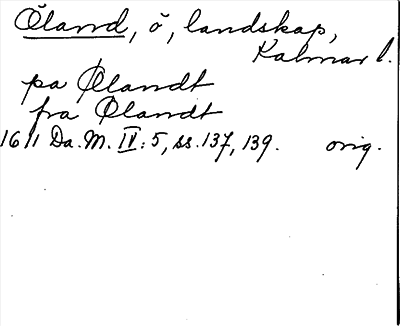 Öland, ö, landskap,
Kalmar l.
på Ølandt
fra Ølandt
1611 Da. M. IV: 5, ss. 137, 139. orig.